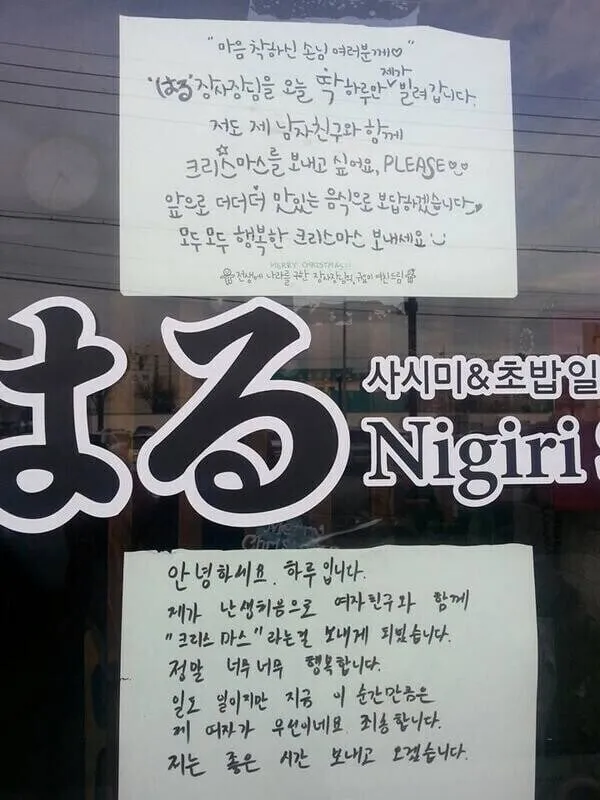 "마음 착하신 손님 여러분께♡"
'はる'장사장님을 오늘 딱 하루만 제가 빌려갑니다.
저도 제 남자친구와 함께
크리스마스를 보내고 싶어요, PLEASE
앞으로 더더더 맛있는 음식으로 보답하겠습니다
모두모두 행복한 크리스마스 보내세요
MERRY CHRISTMAS
전생에 나라를 구한 장사장님의 여친드림
はる
사시미&초밥일
Nigiri
Merry
Chris
안녕하세요. 하루입니다.
제가 난생처음으로 여자친구와 함께
"크리스마스"라는걸 보내게 되었습니다.
정말 너무너무 행복합니다.
일도 일이지만 지금 이 순간만큼은
제 여자가 우선이네요. 죄송합니다.
저는 좋은 시간 보내고 오겠습니다.